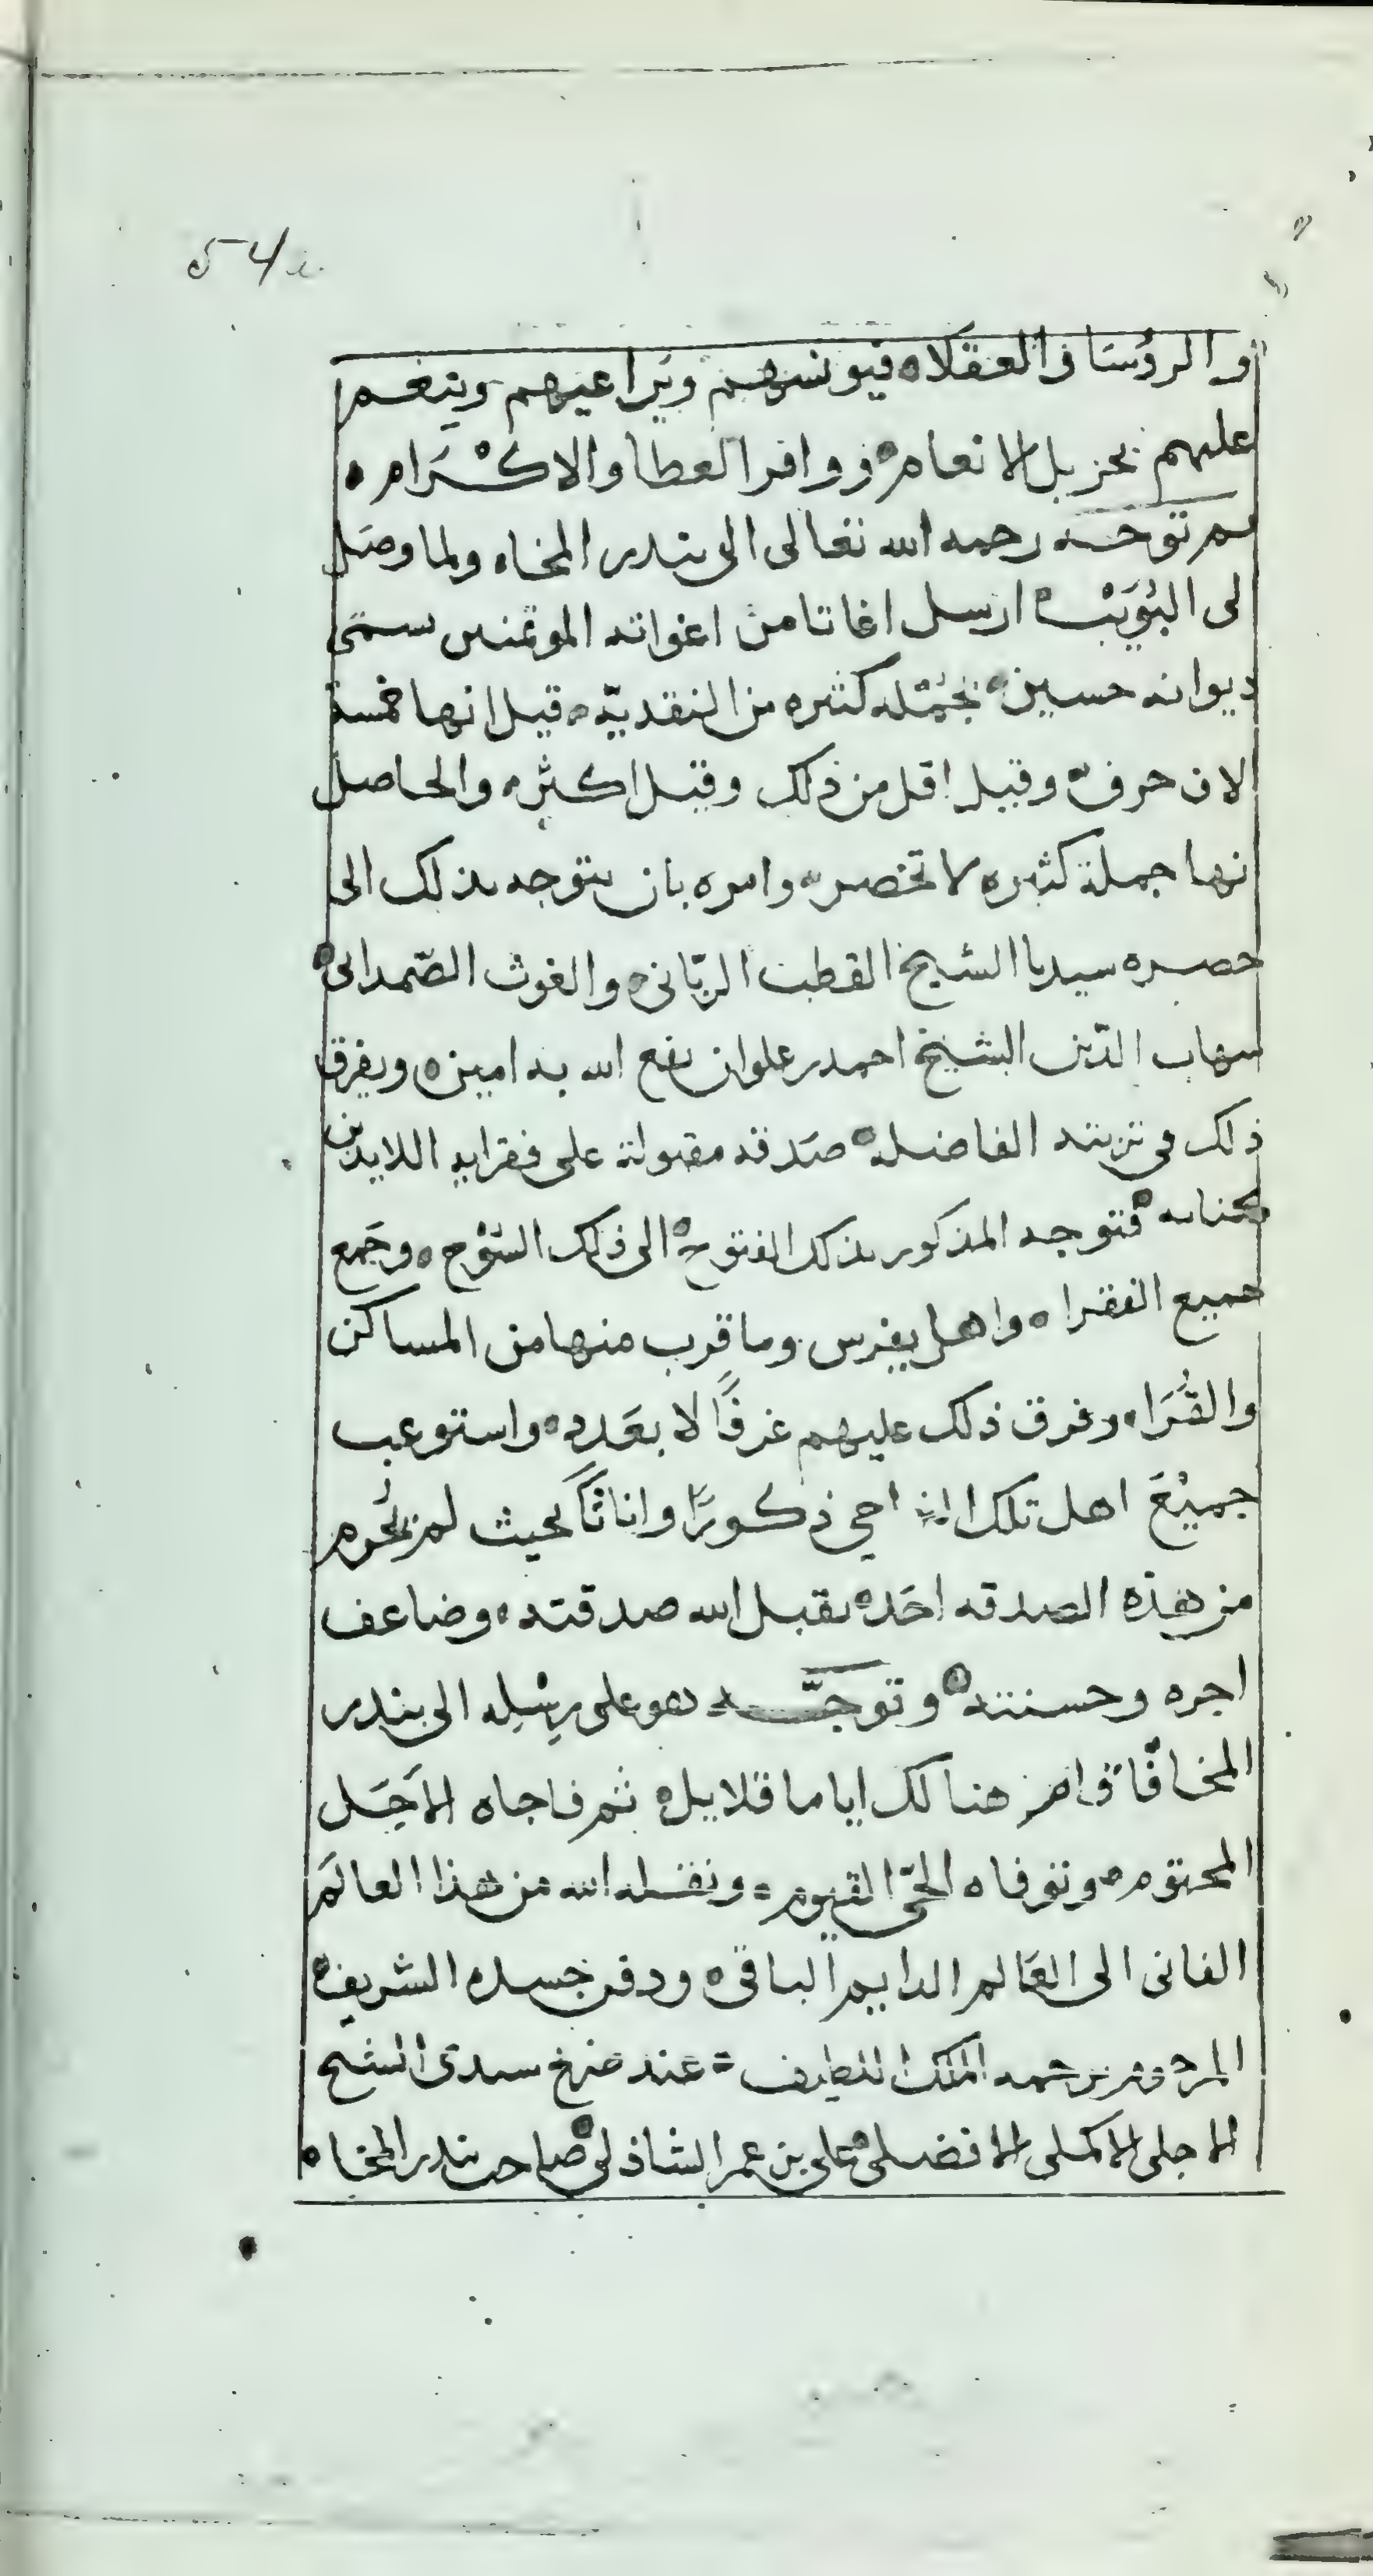 54
والرؤسا والعقلاء فيونسهم ويراعيهم وينعم
عليهم بجزيل الانعام ووافر العطا والاكرام
ثم توجه رحمه الله تعالى الى بندر المخاه ولما وصل
لى البُوَيْب ارسل اغاتا من اغواته الموتمنين سمى
ديوانه حسين بجُمْله كثيره من النقديّه قيل انها خمسة
لاف حرف وقيل اقل من ذلك وقيل اكثر والحاصل
نها جملة كثيره لا تنحصر وامره بان يتوجه بذلك الى
حضره سيدنا الشيخ القطب الربّاني والغوث الصّمداني
شهاب الدّين الشيخ احمد بن علوان نفع الله به امين ويفرق
ذلك في تربته الفاضله صدقه مقبولة على فقرايه اللايذين
بجنابه فتوجه المذكور بذلك الفتوح الى ذلك السُّوح وجَمع
جميع الفقرا واهل يفرس وما قرب منها من المساكن
والقُرَا وغرق ذلك عليهم غرفًا لا بعَدد واستوعب
جميْعَ اهل تلك النواحي ذكورًا واناثًا بحيث لم يُحرم
من هذه الصدقه احَد تقبل الله صدقته وضاعف
اجره وحسنته وتوجَّه هو على رِسْلِه الى بندر
المخا فاقام هنالك اياما قلايل ثم فاجاه الاجَل
المحتوم وتوفاه الحيّ القيوم ونقله الله من هذا العالَم
الفانى الى العَالم الدايم الباقي ودفن جسده الشريف
برحمه الملك اللطيف عند ضريح سيدى الشيخ
الاجلى الاكملى الافضلى على بن عمر الشاذلى صاحب بندر المخاه